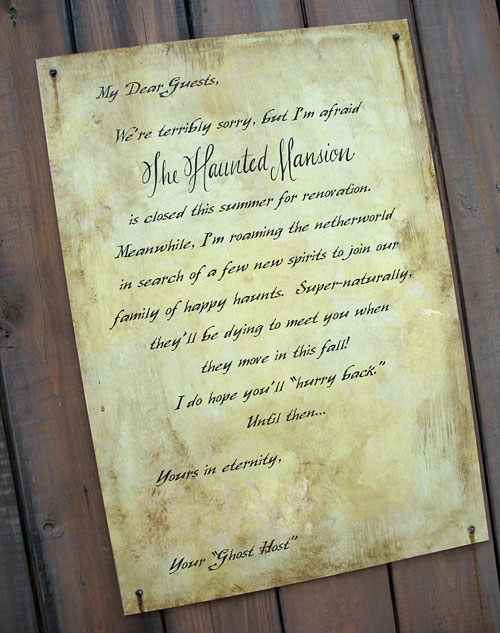 My Dear Guests,
We're terribly sorry, but I'm afraid
The Haunted Mansion
is closed this summer for renovation.
Meanwhile, I'm roaming the netherworld
in search of a few new spirits to join our
family of happy haunts. Super-naturally,
they'll be dying to meet you when
they move in this fall!
I do hope you'll "hurry back."
Until then...
Yours in eternity,
Your "Ghost Host"